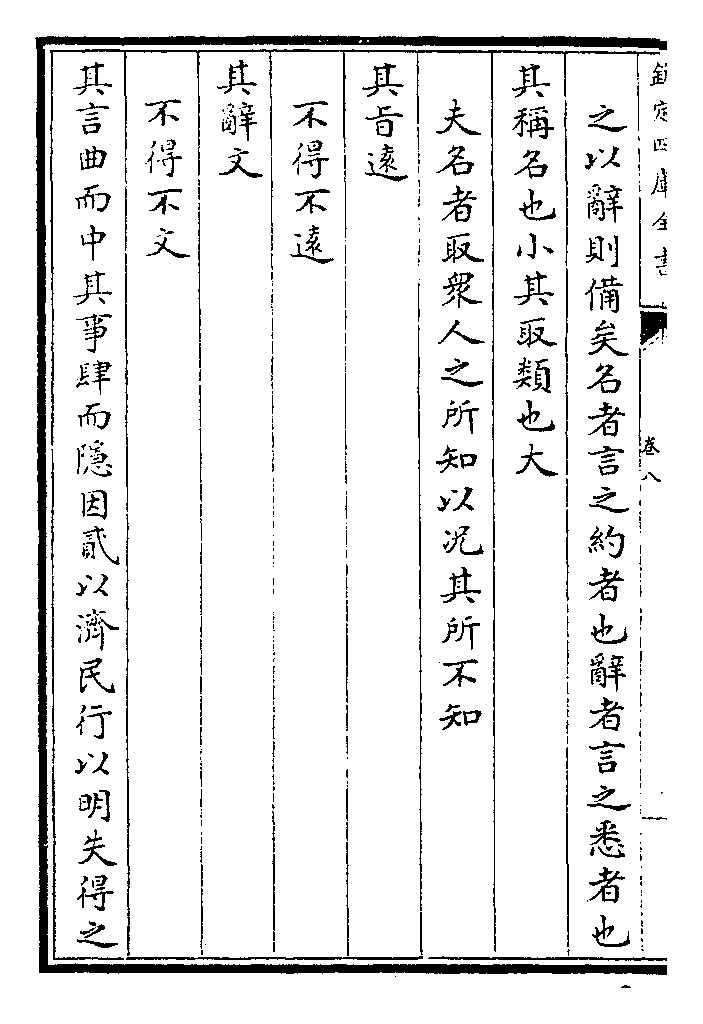 欽定四庫全書
卷八
之以辭則備矣名者言之約者也辭者言之悉者也
其稱名也小其取類也大
夫名者取衆人之所知以况其所不知
其旨遠
不得不遠
其辭文
不得不文
其言曲而中其事肆而隱因貳以濟民行以明失得之